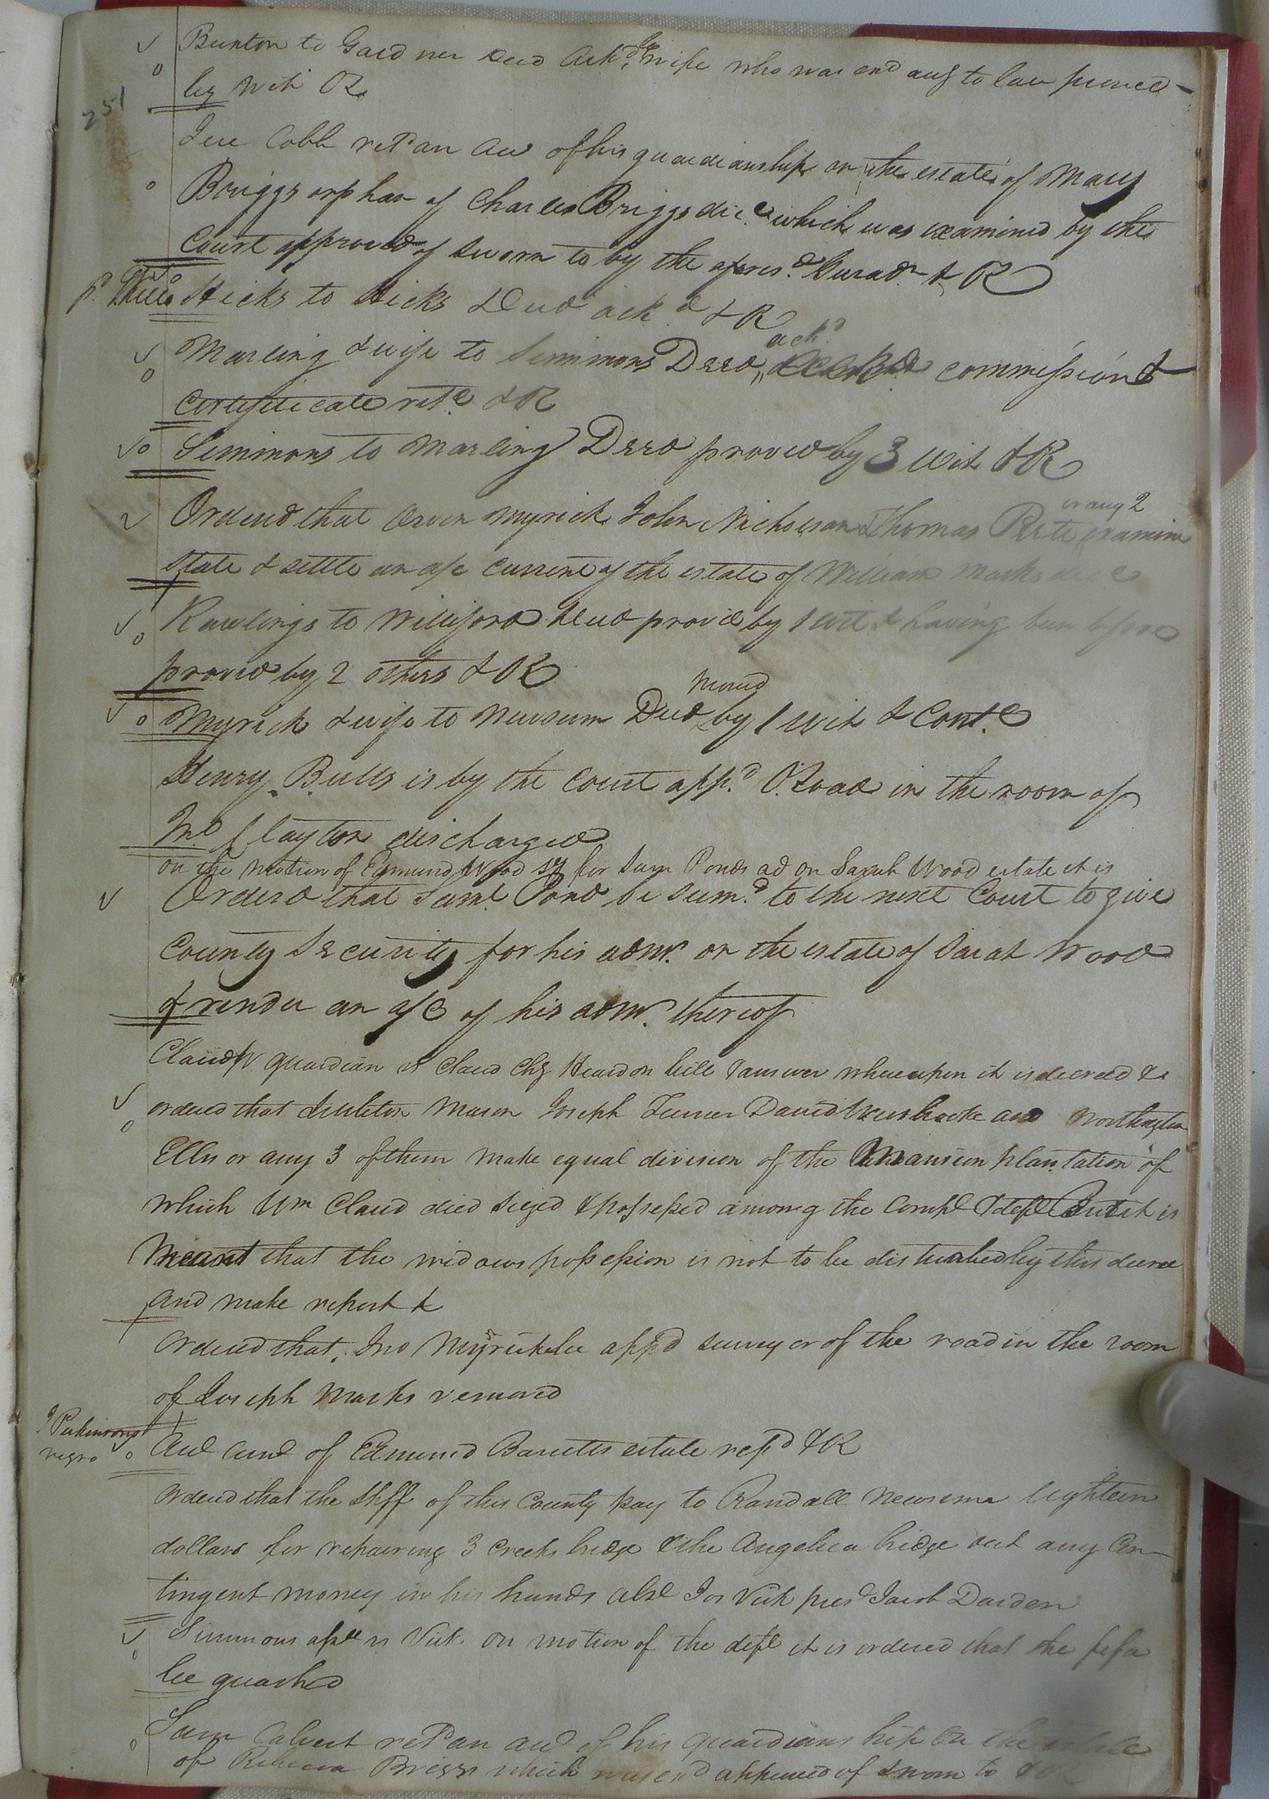 Bunton to Gardner Deed Ackd. & wife who was exd acug to law proved
by wit OR
251
Jere Cobb retd an acc of his guardianship on the estate of Mary
Briggs orphan of Charles Briggs decd. which was examined by the
Court approved of sworn to by the aforesd. Guradn & R
Hicks to Hicks Deed ackd & R
Marling & wife to Simmons Deed ackd. commission &
certificate retd. & R
Simmons to Marling Deed proved by 3 wit & R
Ordered that Owen Myrick John Nicholson & Thomas Pete or any 2 examine
state & settle an a/c current of the estate of William Marks decd
Rawlings to Williford Deed proved by 1 wit & having been before
proved by 2 others & R
Myrick & wife to Newsum Deed proved by 1 wit & Contd
Henry Butts is by the Court appd. O. Road in the room of
Clayton discharged
on the motion of Edmund Wood sy for Sam Ponds ad on Sarah Wood estate it is
Ordered that Saml. Pond be sumd. to the next Court to give
County Security for his admr. on the estate of Sarah Wood
& render an a/c of his admr. thereof
Claud guardian vs Claud Chy Heard on bill & answer whereupon it is decreed &
ordered that Littleton Mason Joseph Turner David and Worthington
Ellis or any 3 of them make equal division of the Mansion plantation of
which Wm Claud died siezed & possessed among the Compl & deft But it is
Meant that the widows possession is not to be disturbed by this decree
and make report &
Ordered that Jno Myrick be appd surveyor of the road in the room
of Joseph Marks removed
J Parkinsons
negro
Aud acct of Edmund Barretts estate retd & R
Ordered that the Shff of this County pay to Randall Newsum Eighteen
dollars for repairing 3 Creeks bridge & the Angelica bridge out any Con-
tingent money in his hands absd Jos Vick presd Jacob Darden
Simmons assee vs Vick on motion of the deft it is ordered that the fifa
be quashd
Sam Calvert retd an acct of his guardianship on the estate
of Rebecca Briggs which was exd approved of sworn to & R